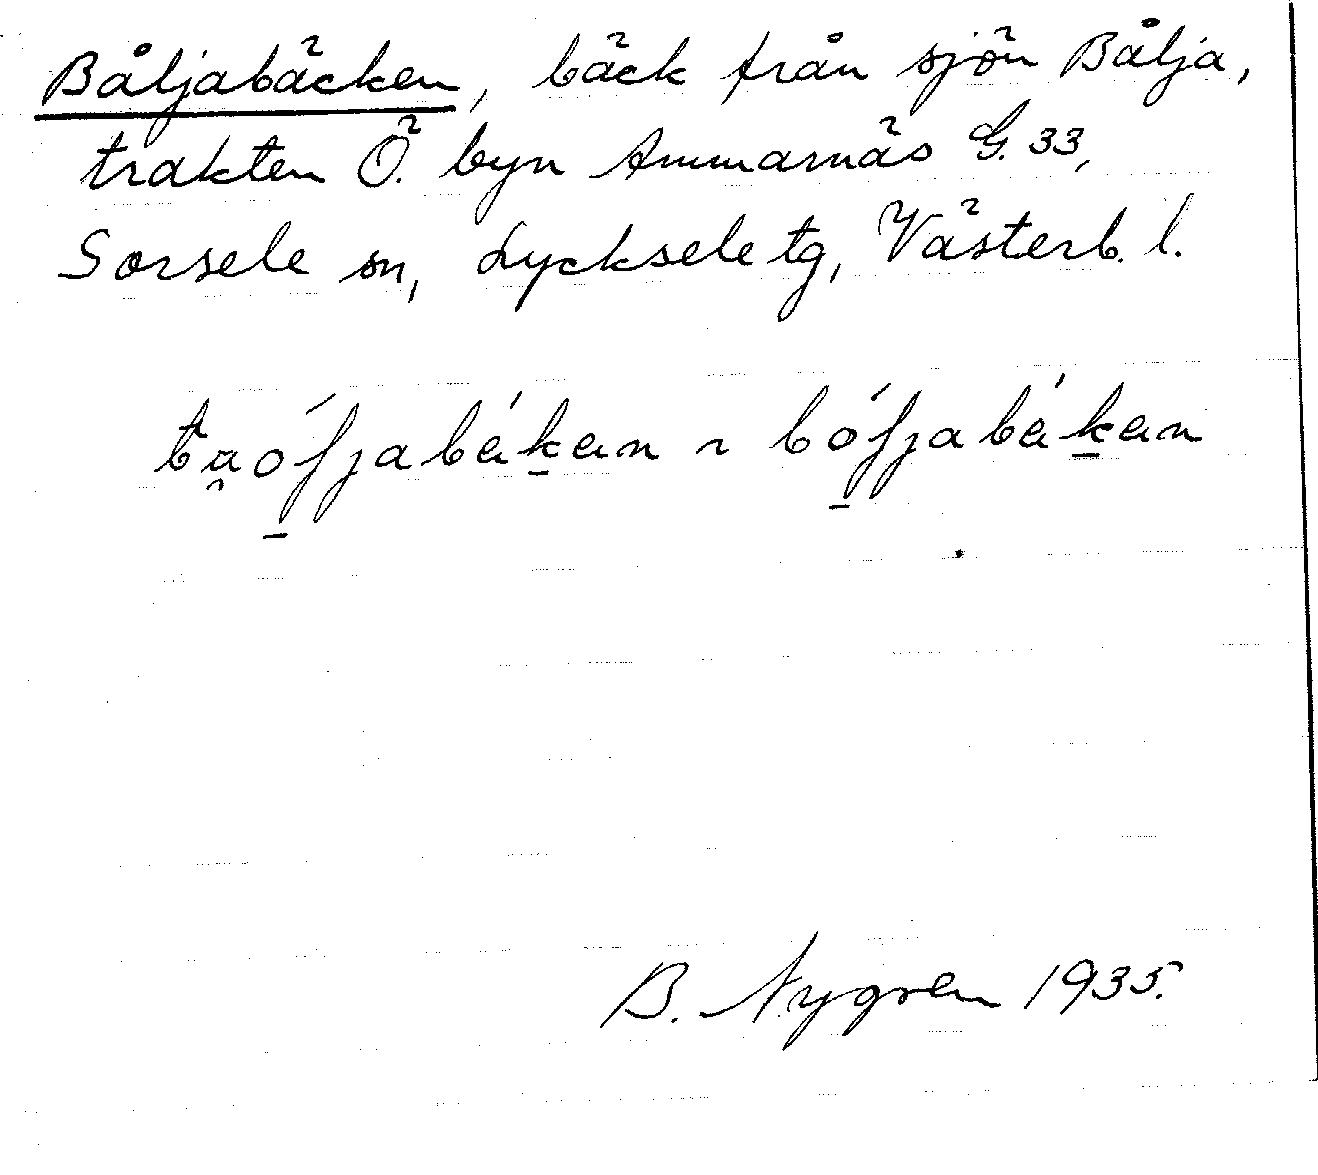 Båljabäcken, bäck från sjön Bålja,
trakten Ö. byn Ammarnäs G. 33,
Sorsele sn, Lycksele tg, Västerb. l.
B. Nygren 1935.